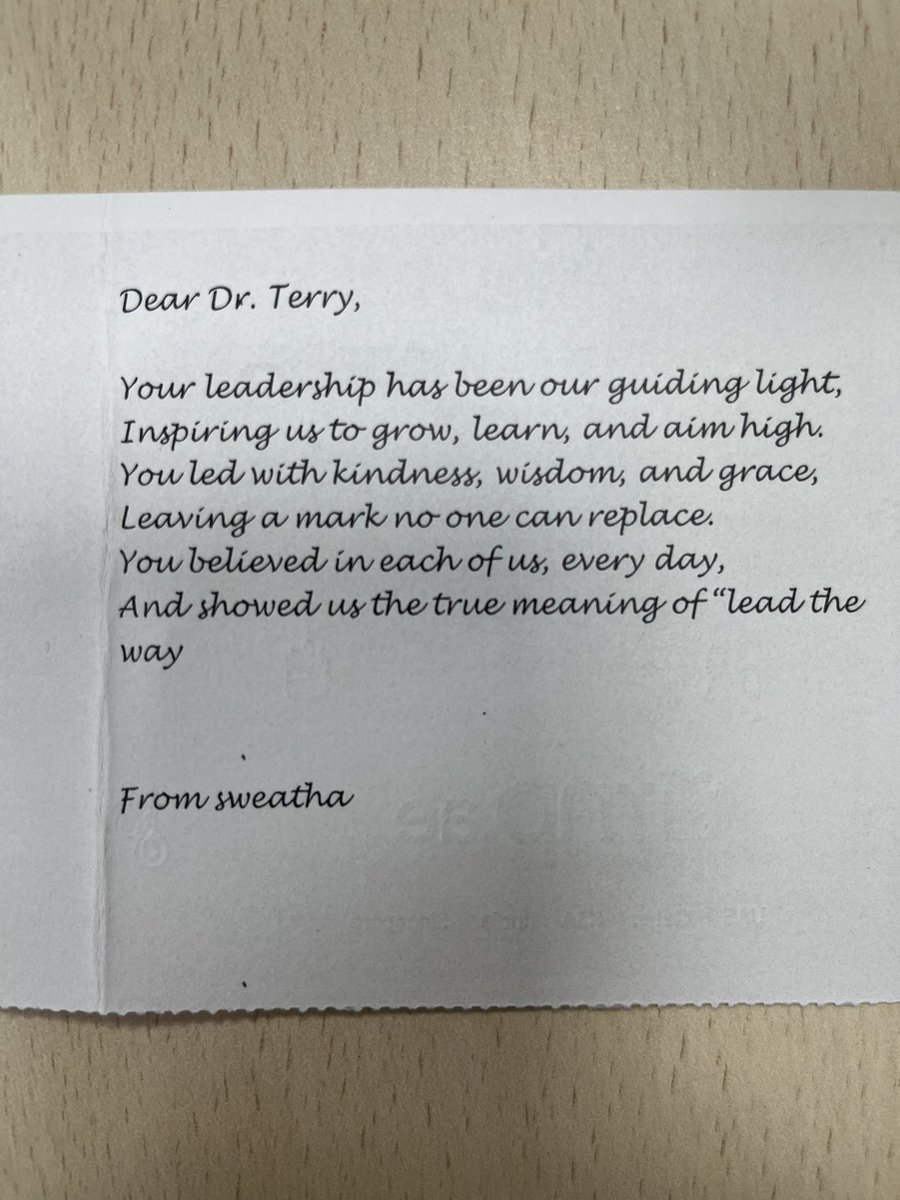 Dear Dr. Terry,
Your leadership has been our guiding light,
Inspiring us to grow, learn, and aim high.
You led with kindness, wisdom, and grace,
Leaving a mark no one can replace.
You believed in each of us, every day,
And showed us the true meaning of “lead the
way
From sweatha